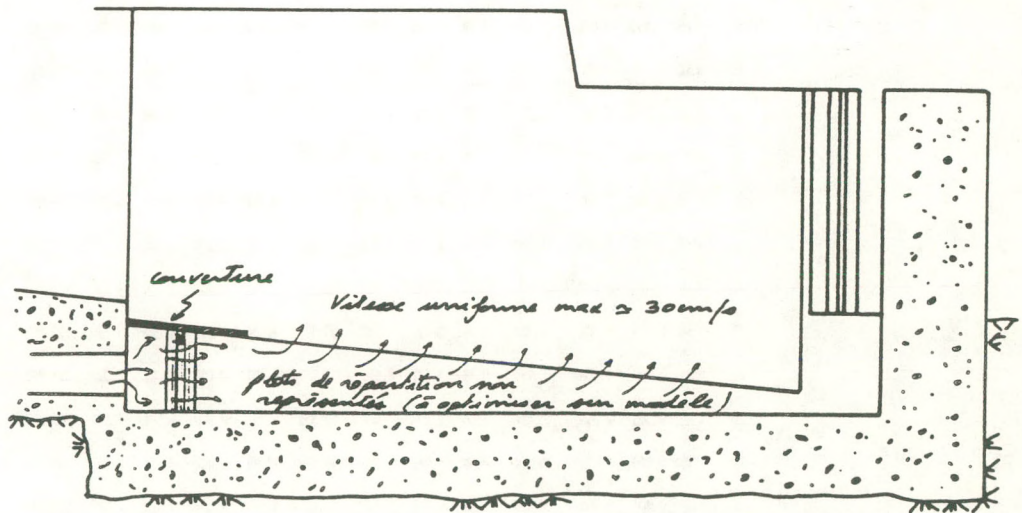 couverture
Vitesse uniforme max ≃ 30cm/s
plots de répartition non
représentés (à optimiser sur modèle)